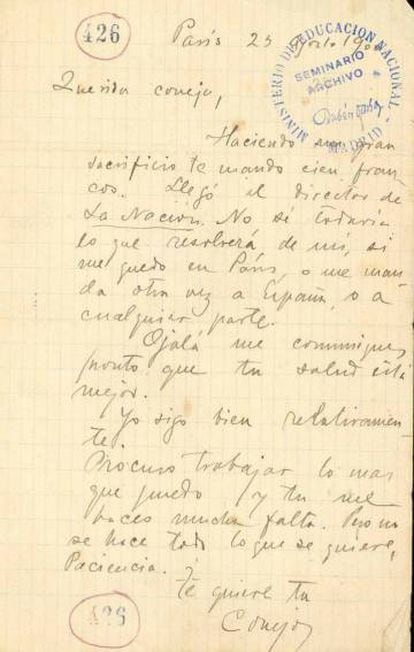 426
París 23 Agosto 1900
MINISTERIO DE EDUCACION NACIONAL
SEMINARIO
ARCHIVO
Rubén Darío
MADRID
Querida coneja,
Haciendo un gran
sacrificio te mando cien fran-
cos. Llegó el director de
La Nación. No sé todavía
lo que resolverá de mí, si
me quedo en París, o me man-
da otra vez a España, o a
cualquier parte.
Ojalá me comuniques
pronto que tu salud está
mejor.
Yo sigo bien relativamen-
te.
Procuro trabajar lo mas
que puedo y tu me
haces mucha falta. Pero no
se hace todo lo que se quiere,
Paciencia.
Te quiere tu
Conejo
426